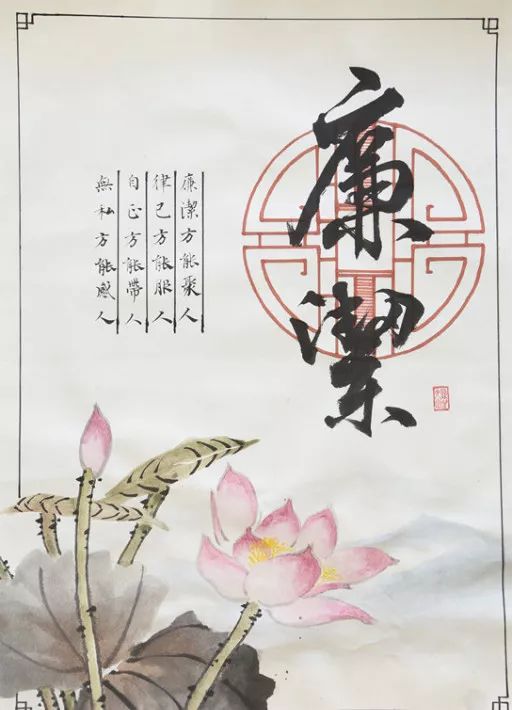 廉潔
廉潔方能聚人
律己方能服人
自正方能帶人
無私方能感人